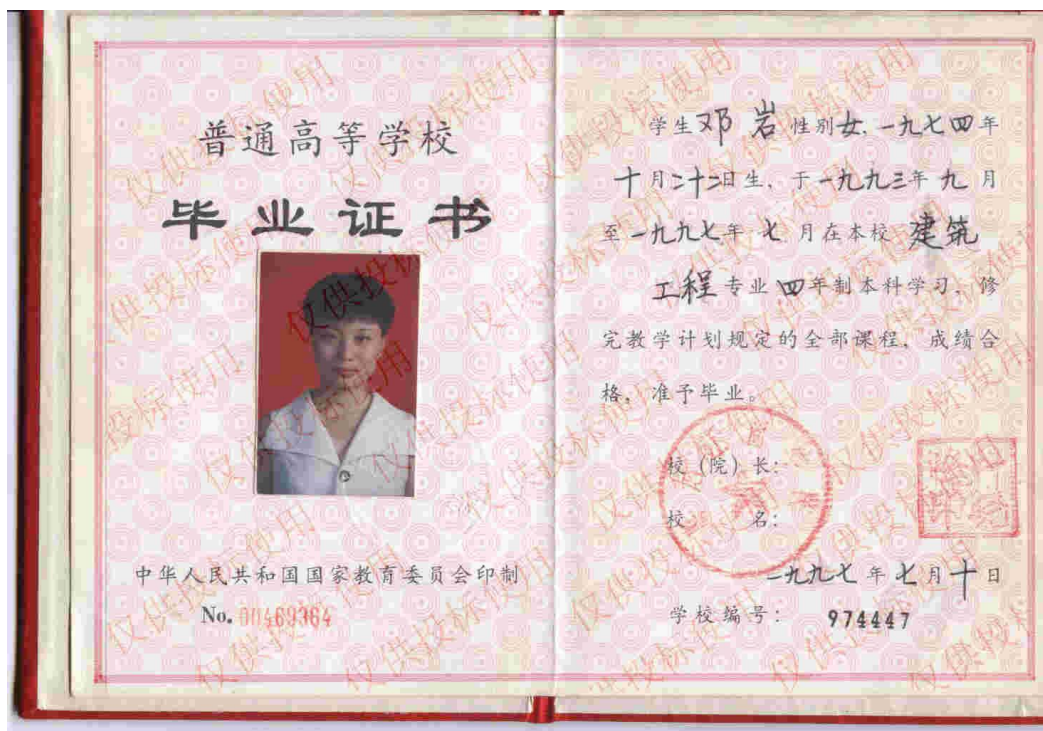 普通高等学校
毕业证书
中华人民共和国国家教育委员会印制
No. 00469364
学生邓岩性别女,一九七四年
十月二十二日生,于一九九三年九月
至一九九七年七月在本校建筑
工程专业四年制本科学习,修
完教学计划规定的全部课程,成绩合
格,准予毕业。
校(院)长:
校名:
一九九七年七月十日
学校编号: 974447
仅供投标使用